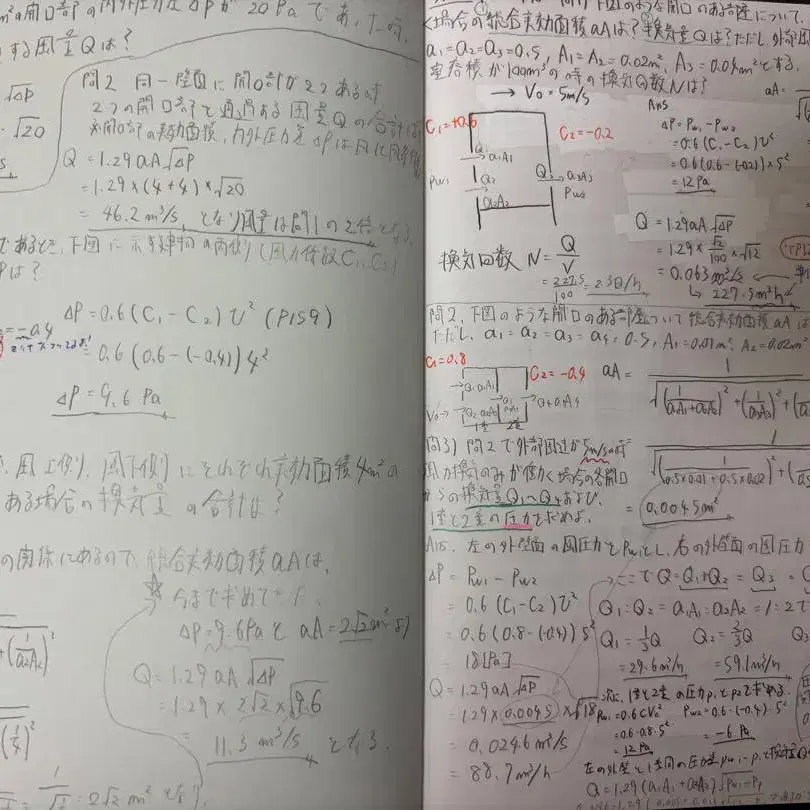 m²の開口部の内外圧力差ΔPが20Paであった時、
する風量Qは?
√ΔP
√20
問2 同一壁面に開口部が2つある時
2つの開口部を通過する風量Qの合計は
Q = 1.29 aA √ΔP
= 1.29 × (4+4) × √20
= 46.2 m³/s となり風量は問1の2倍となる。
であるとき、下図に示す建物の両側(風力係数C₁、C₂)
Pは?
= -0.4
ΔP = 0.6 (C₁ - C₂) V² (P159)
= 0.6 (0.6 - (-0.4)) 4²
ΔP = 9.6 Pa
風上側、風下側にそれぞれ実効面積4m²の
ある場合の換気量の合計は?
の関係にあるので、総合実効面積aAは、
今まで求めて
ΔP = 9.6Pa と aA = 2√2 m²
Q = 1.29 aA √ΔP
= 1.29 × 2√2 × √9.6
= 11.3 m³/s となる。
2√2 m² となり、
のような開口のある部屋について
場合の総合実効面積aAは?換気量Qは?ただし外部風
a₁=a₂=a₃=0.5, A₁=A₂=0.02m², A₃=0.04m²とする。
室容積が100m³の時の換気回数Nは?
→ V₀=5m/s
C₁=+0.6
C₂=-0.2
Q₁
→ a₁A₁
Q₂
a₂A₂
Q₃
→ a₃A₃
Pw₁
Pw₂
Ans
ΔP = Pw₁ - Pw₂
= 0.6 (C₁ - C₂) V²
= 0.6 (0.6 - (-0.2)) × 5²
= 12 Pa
aA =
Q = 1.29 aA √ΔP
= 1.29 × √2/100 × √12
= 0.063 m³/s
→ 227.5 m³/h
換気回数 N = Q/V
= 227.5/100 = 2.3回/h
問2. 下図のような開口のある部屋について総合実効面積aAは
ただし、a₁=a₂=a₃=a₄=0.5, A₁=0.01m², A₂=0.02m²
C₁=0.8
C₂=-0.4
V₀→
1室 2室
aA = 1/√((1/(a₁A₁+a₂A₂))² + (1/(a₃A₃))² + (
1/√((1/(0.5×0.01+0.5×0.02))² + (
= 0.0045m²
問3) 問2で外部風速が5m/sの時
風力換気のみが働く場合の各開口
からの換気量Q₁~Q₄および、
1室と2室の圧力を求めよ。
Ans. 左の外壁面の風圧力をPw₁とし、右の外壁面の風圧力
ΔP = Pw₁ - Pw₂
= 0.6 (C₁ - C₂) V²
= 0.6 (0.8 - (-0.4)) 5²
= 18[Pa]
Q = 1.29 aA √ΔP
= 1.29 × 0.0045 × √18
= 0.0246 m³/s
= 88.7 m³/h
ここで Q = Q₁+Q₂ = Q₃ =
Q₁:Q₂ = a₁A₁:a₂A₂ = 1:2で
Q₁ = 1/3 Q Q₂ = 2/3 Q Q₃
= 29.6m³/h = 59.1m³/h
次に、1室と2室の圧力P₁とP₂を求める。
Pw₁ = 0.6 C V₀² Pw₂ = 0.6・(-0.4)・5²
= 0.6・0.8・5² = -6 Pa
= 12 Pa
左の外壁と1室間の圧力差Pw₁-P₁と換気量
Q = 1.29 (a₁A₁+a₂A₂) √Pw₁-P₁